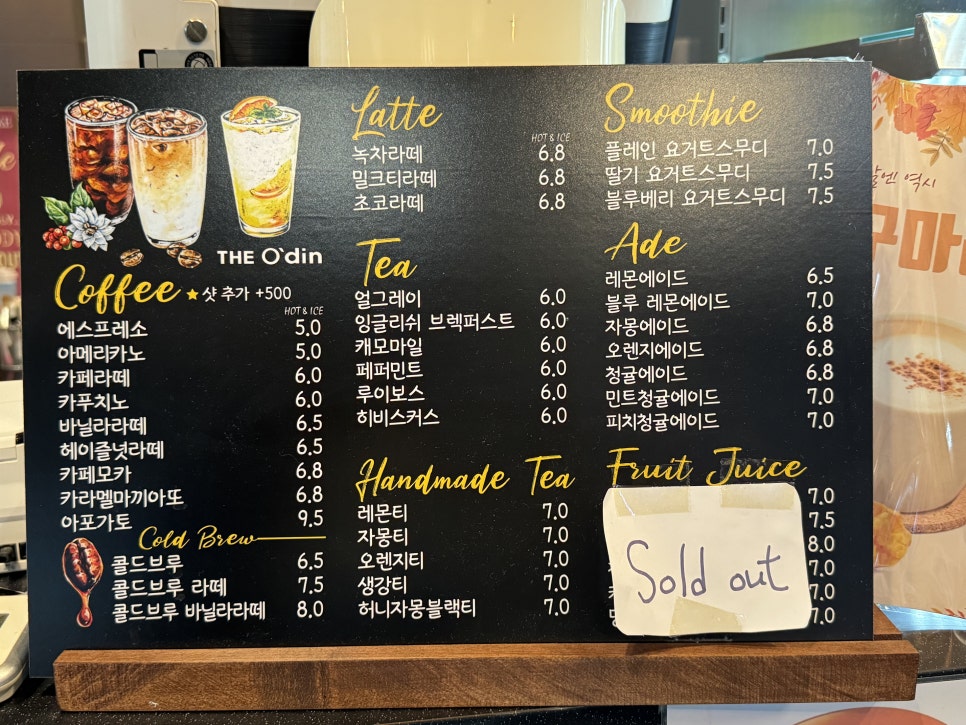 THE O'din
Coffee ★ 샷 추가 +500
HOT & ICE
에스프레소 5.0
아메리카노 5.0
카페라떼 6.0
카푸치노 6.0
바닐라라떼 6.5
헤이즐넛라떼 6.5
카페모카 6.8
카라멜마끼아또 6.8
아포가토 9.5
Cold Brew
콜드브루 6.5
콜드브루 라떼 7.5
콜드브루 바닐라라떼 8.0
Latte
HOT & ICE
녹차라떼 6.8
밀크티라떼 6.8
초코라떼 6.8
Tea
얼그레이 6.0
잉글리쉬 브렉퍼스트 6.0
캐모마일 6.0
페퍼민트 6.0
루이보스 6.0
히비스커스 6.0
Handmade Tea
레몬티 7.0
자몽티 7.0
오렌지티 7.0
생강티 7.0
허니자몽블랙티 7.0
Smoothie
플레인 요거트스무디 7.0
딸기 요거트스무디 7.5
블루베리 요거트스무디 7.5
Ade
레몬에이드 6.5
블루 레몬에이드 7.0
자몽에이드 6.8
오렌지에이드 6.8
청귤에이드 6.8
민트청귤에이드 7.0
피치청귤에이드 7.0
Fruit Juice
7.0
7.5
8.0
7.0
7.0
7.0
Sold out
역시